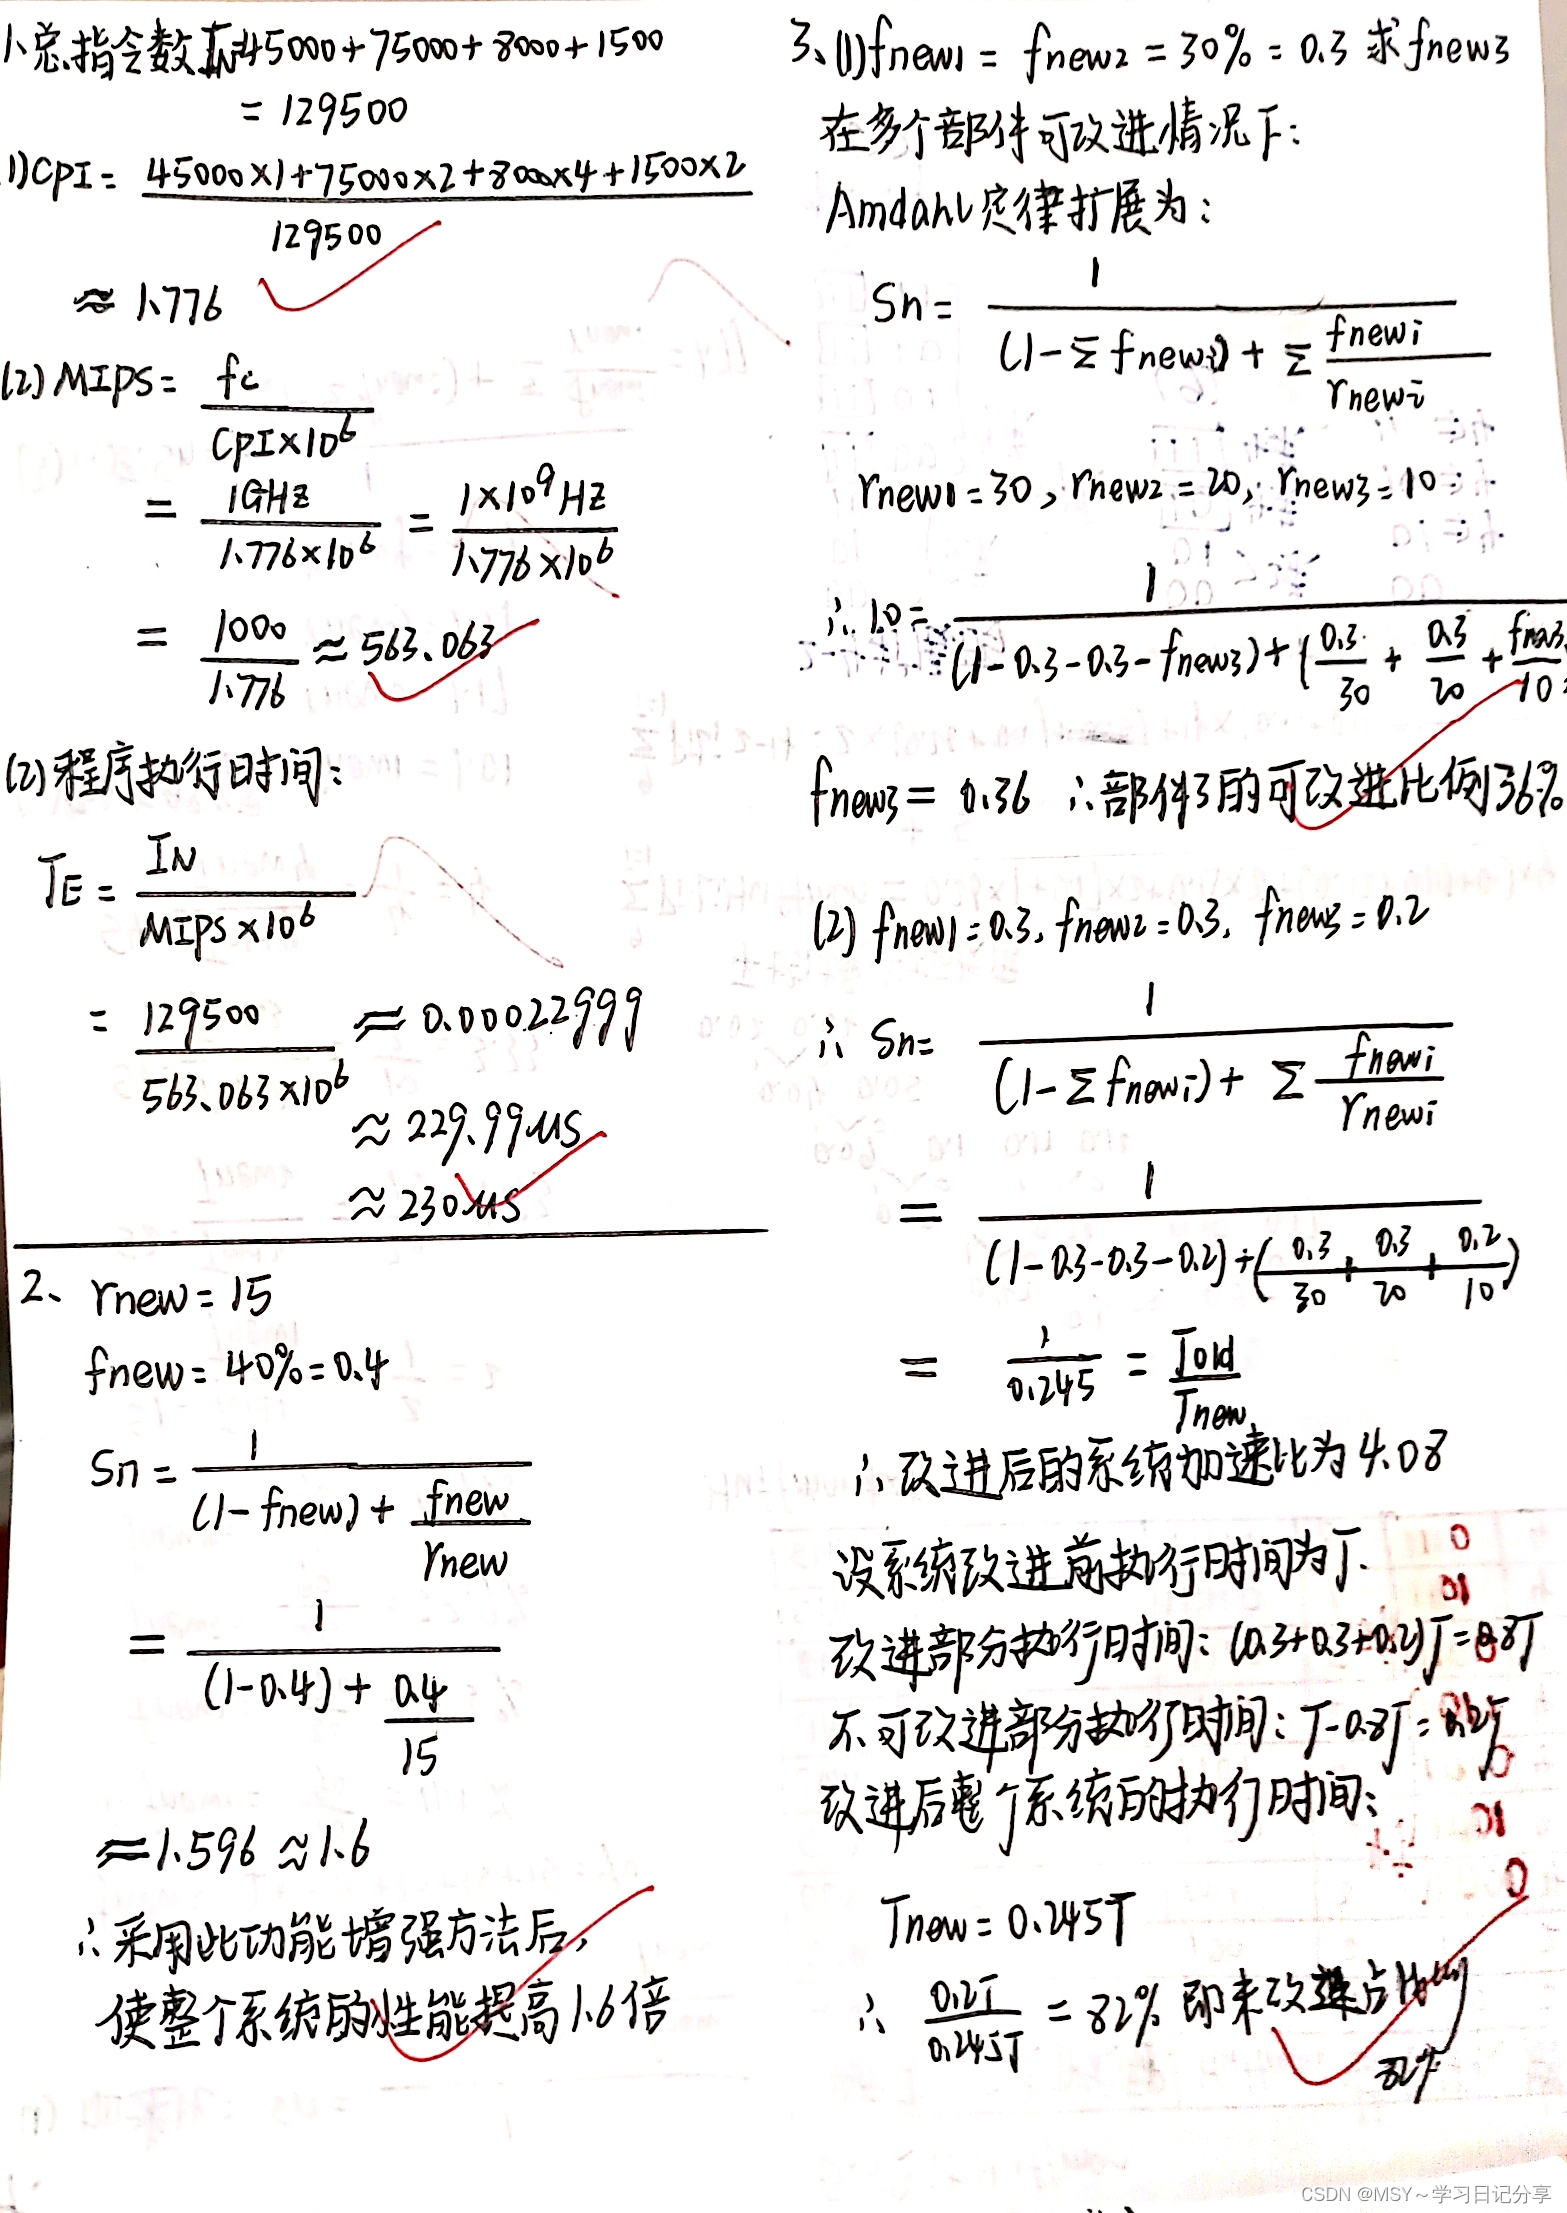 1、总指令数IN=45000+75000+8000+1500
=129500
(1)CPI= 45000×1+75000×2+8000×4+1500×2
129500
≈1.776
(2)MIPS= fc
CPI×10⁶
= 1GHz = 1×10⁹HZ
1.776×10⁶ 1.776×10⁶
= 1000 ≈563.063
1.776
(2)程序执行时间:
TE= IN
MIPS×10⁶
= 129500 ≈0.00022999
563.063×10⁶
≈229.99us
≈230us
2、rnew=15
fnew=40%=0.4
Sn= 1
(1-fnew)+ fnew
rnew
= 1
(1-0.4)+ 0.4
15
≈1.596≈1.6
∴采用此功能增强方法后,
使整个系统的性能提高1.6倍
3、(1)fnew1=fnew2=30%=0.3 求fnew3
在多个部件可改进情况下:
Amdahl定律扩展为:
Sn= 1
(1-Σfnewi)+Σ fnewi
rnewi
rnew1=30,rnew2=20,rnew3=10
∴10= 1
(1-0.3-0.3-fnew3)+( 0.3 + 0.3 + fnew3
30 20 10
fnew3=0.36 ∴部件3的可改进比例36%
(2)fnew1=0.3,fnew2=0.3,fnew3=0.2
∴Sn= 1
(1-Σfnewi)+Σ fnewi
rnewi
= 1
(1-0.3-0.3-0.2)+( 0.3 + 0.3 + 0.2 )
30 20 10
= 1 = Told
0.245 Tnew
∴改进后的系统加速比为4.08
设系统改进前执行时间为T.
改进部分执行时间:(0.3+0.3+0.2)T=0.8T
不可改进部分执行时间:T-0.8T=0.2T
改进后整个系统的执行时间:
Tnew=0.245T
∴ 0.2T =82% 即未改进占
0.245T
82%
CSDN @MSY~学习日记分享